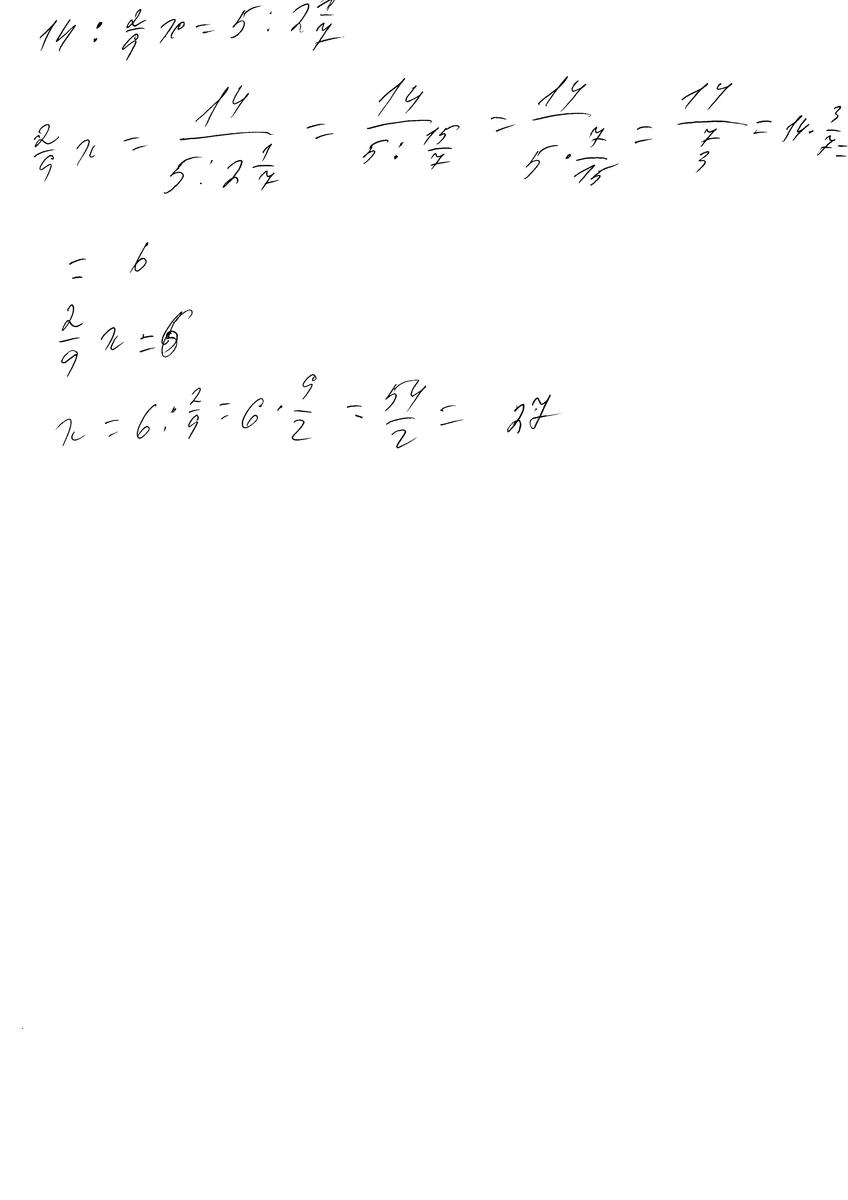 14 : 2/9 x = 5 : 2 1/7
2/9 x = 14/(5 : 2 1/7) = 14/(5 : 15/7) = 14/(5 · 7/15) = 14/(7/3) = 14 · 3/7 =
= 6
2/9 x = 6
x = 6 : 2/9 = 6 · 9/2 = 54/2 = 27